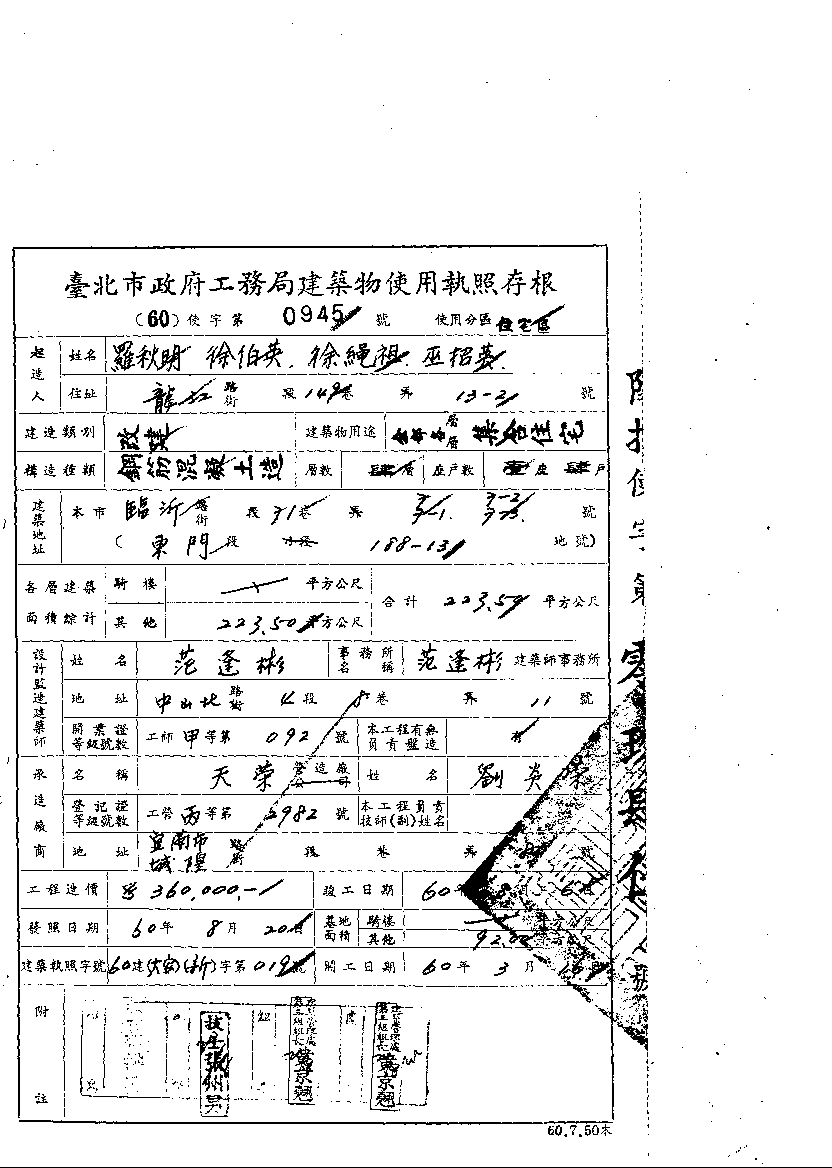 臺北市政府工務局建築物使用執照存根
(60)使字第 0945 號 使用分區 住宅區
起造人 姓名 羅秋明 徐伯英 徐繩祖 巫招
住址 龍江 路街 段 149巷 弄 13-2 號
建造類別 改建 建築物用途 全部各層 集合住宅
構造種類 鋼筋混凝土造 層數 肆層 座戶數 壹座 肆戶
建築地址 本市 臨沂 路街 段 31巷 弄 號
(東門段 小段 188-13 地號)
各層建築面積綜計 騎樓 平方公尺 合計 223.50 平方公尺
其他 223.50 平方公尺
設計監造建築師 姓名 范逢彬 事務所名稱 范逢彬 建築師事務所
地址 中山北 路街 段 8巷 弄 11 號
開業證等級號數 工師 甲等第 092 號 本工程有無負責監造 有
承造廠商 名稱 天榮 營造廠公司 姓名 劉炎
登記證等級號數 工營 丙等第 2982 號 本工程負責技師(副)姓名
地址 宜蘭市城隍 路街 段 巷 弄 號
工程造價 360,000.- 竣工日期 60年 8月
發照日期 60年 8月 20日 基地面積 騎樓 平方公尺
其他 92.00 平方公尺
建築執照字號 60建(大安)(新)字第019號 開工日期 60年 3月
附註
技士張州昊
建築管理處第三組組長
60.7.50本
使字第
號